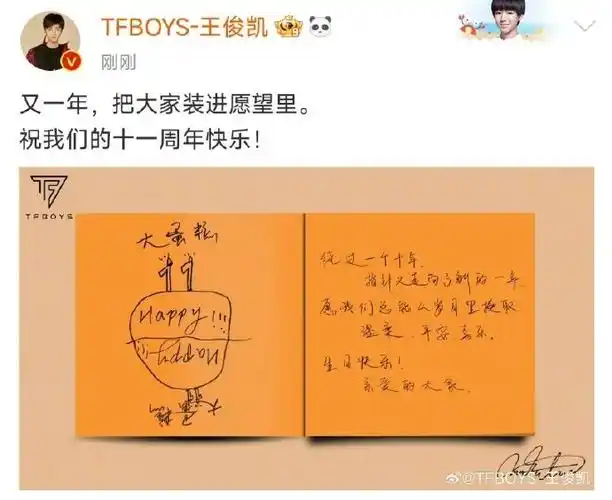 TFBOYS-王俊凯
刚刚
又一年，把大家装进愿望里。
祝我们的十一周年快乐！
TFBOYS
大蛋糕
Happy!!!
Happy!!!
大蛋糕
绕过一个十年，
指针又走向了新的一年
愿我们总能从岁月里提取
温柔、平安、喜乐。
生日快乐！
亲爱的大家。
@TFBOYS-王俊凯